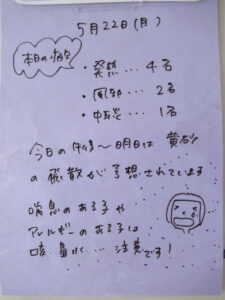 5月22日(月)
本日の病欠
・発熱… 4名
・風邪… 2名
・中耳炎… 1名
今日の午後〜明日は 黄砂
の飛散が予想されています
喘息のある子や
アレルギーのある子は
咳、鼻水… 注意です!